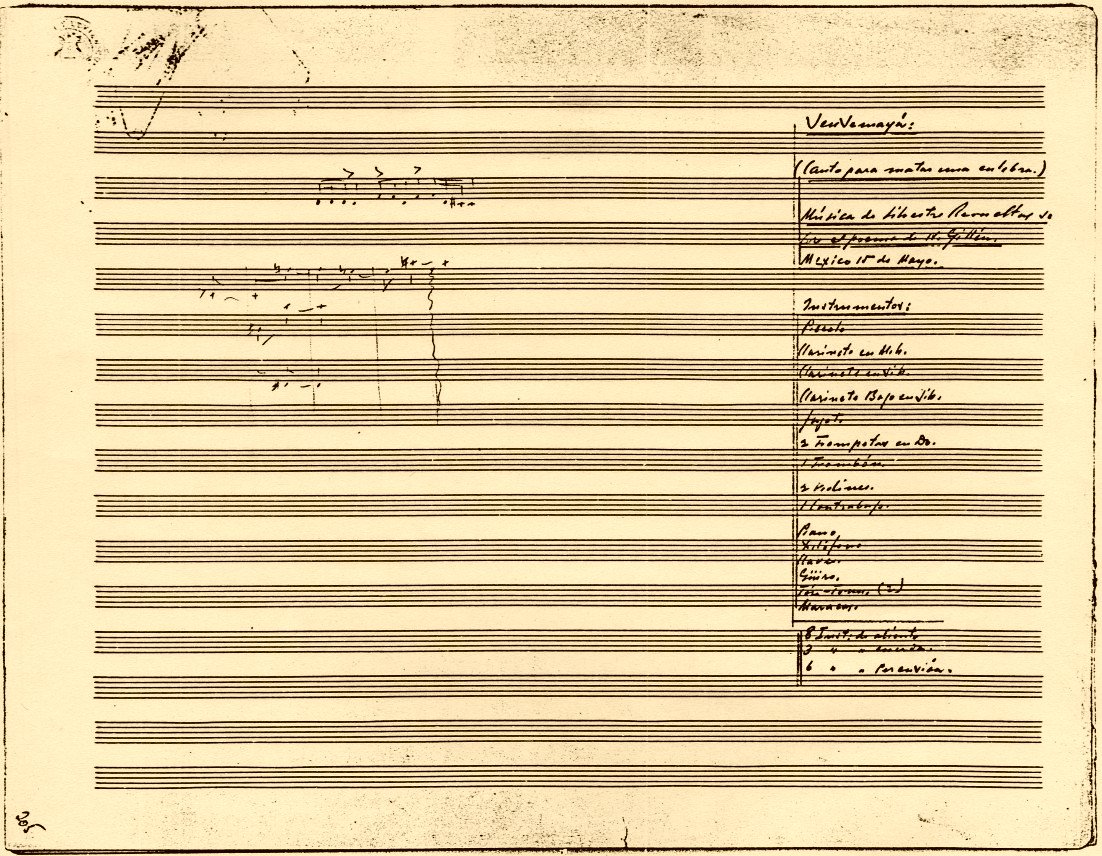 (Canto para matar una culebra.)
Música de Silvestre Revueltas
el poema de N. Guillén.
México 15 de Mayo.
Instrumentos:
Piccolo
Clarinete en Mib.
Clarinete en Sib.
Clarinete Bajo en Sib.
Fagot.
2 Trompetas en Do.
1 Trombón.
2 Violines.
1 Contrabajo.
Piano,
Xilófono
Clave.
Güiro.
Tom-Toms (2)
Maracas.
8 Inst: de aliento
3 " " cuerda.
6 " " Percusión.